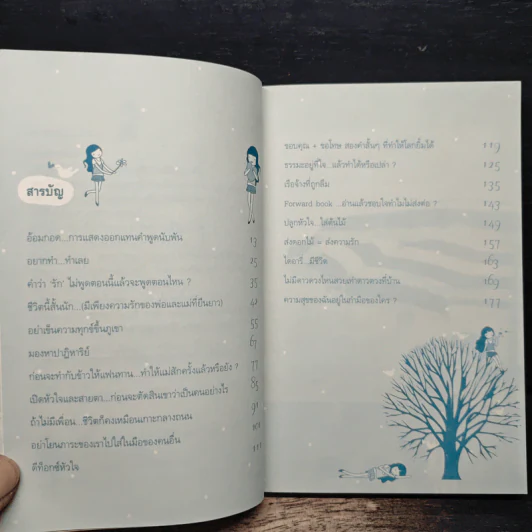 สารบัญ
อ้อมกอด...การแสดงออกแทนคำพูดนับพัน 13
อยากทำ...ทำเลย 25
คำว่า 'รัก' ไม่พูดตอนนี้แล้วจะพูดตอนไหน ? 35
ชีวิตนี้สั้นนัก...(มีเพียงความรักของพ่อและแม่ที่ยืนยาว)
อย่าเข็นความทุกข์ขึ้นภูเขา 55
มองหาปาฏิหาริย์ 67
ก่อนจะทำกับข้าวให้แฟนทาน...ทำให้แม่สักครั้งแล้วหรือยัง ? 77
เปิดหัวใจและสายตา...ก่อนจะตัดสินเขาว่าเป็นคนอย่างไร 83
ถ้าไม่มีเพื่อน...ชีวิตก็คงเหมือนเกาะกลางถนน 91
อย่าโยนภาระของเราไปใส่ในมือของคนอื่น
ดีท็อกซ์หัวใจ
ขอบคุณ + ขอโทษ สองคำสั้นๆ ที่ทำให้โลกยิ้มได้ 119
ธรรมะอยู่ที่ใจ...แล้วทำได้หรือเปล่า ? 125
เรือจ้างที่ถูกลืม 135
Forward book ...อ่านแล้วชอบใจทำไมไม่ส่งต่อ ? 143
ปลูกหัวใจ...ใส่ต้นไม้ 149
ส่งดอกไม้ = ส่งความรัก 157
ไดอารี่...มีชีวิต 163
ไม่มีดาวดวงไหนสวยเท่าดาวดวงที่บ้าน 169
ความสุขของฉันอยู่ในกำมือของใคร ? 177